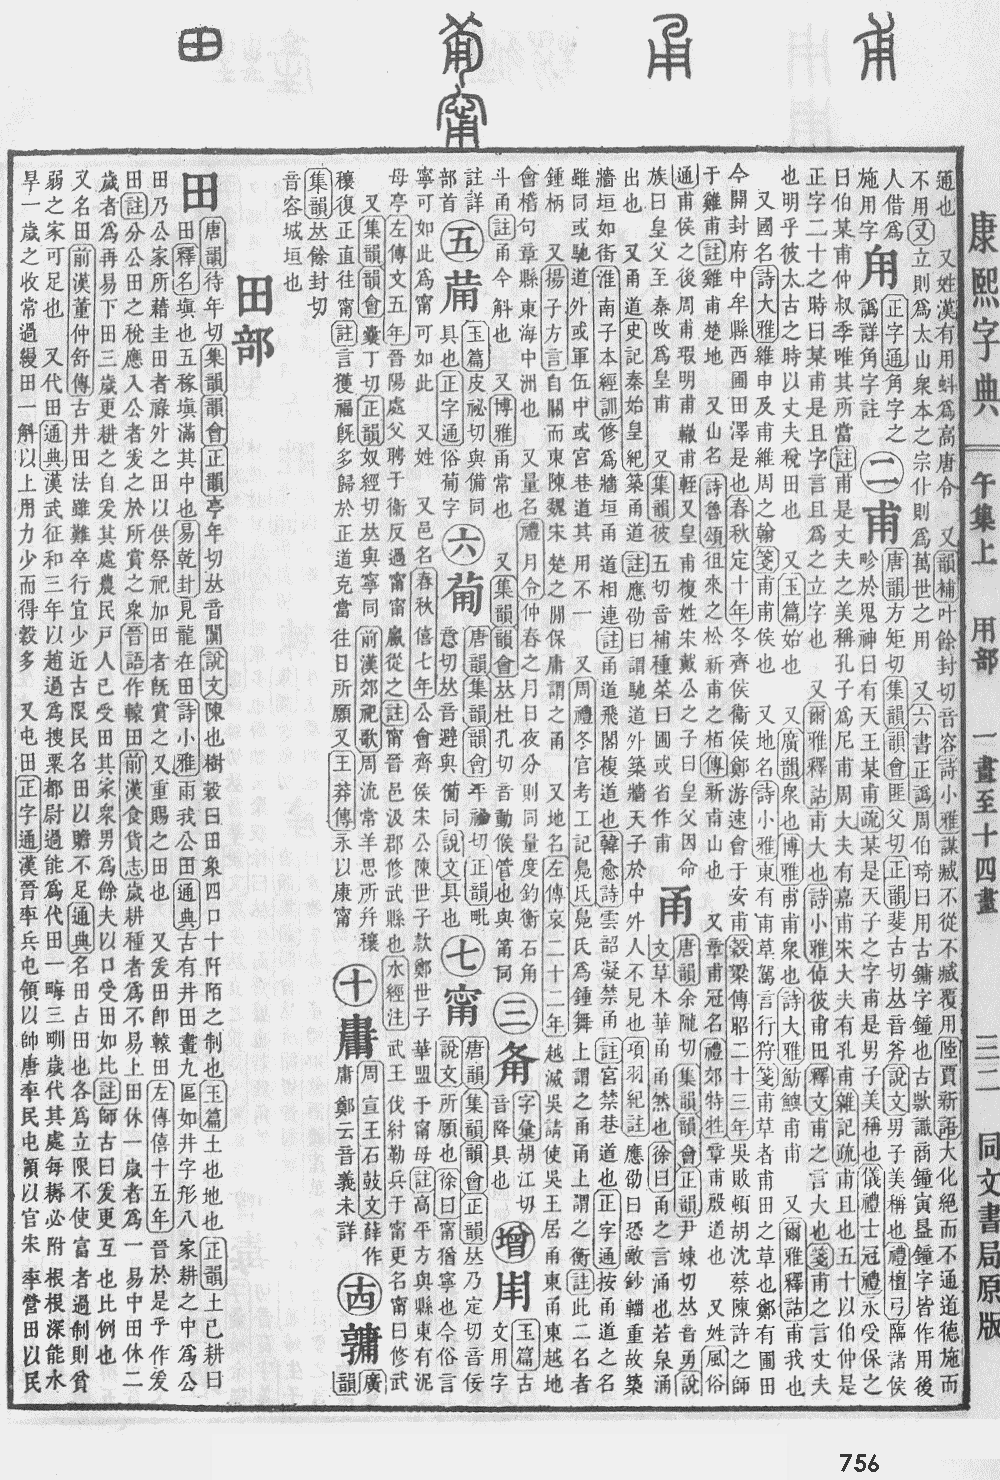 康熙字典 午集上 用部 一畫至十四畫 三二 同文書局原版
通也 又姓漢有用蚪爲高唐令 又韻補叶餘封切音容詩小雅謀臧不從不臧覆用陸賈新語大化絕而不通道德施而
不用又立則爲太山衆本之宗什則爲萬世之用 又六書正譌周伯琦曰用古鏞字鐘也古款識商鐘寅鐘字皆作用後
人借爲施用字 甪 正字通角字之譌詳角字註 二 甫 唐韻方矩切集韻韻會匪父切正韻斐古切𠀤音斧說文男子美稱也禮檀弓臨諸侯
畛於鬼神曰有天王某甫疏某是天子之字甫是男子美稱也儀禮士冠禮永受保之
曰伯某甫仲叔季唯其所當註甫是丈夫之美稱孔子爲尼甫周大夫有嘉甫宋大夫有孔甫雜記疏甫且也五十以伯仲是
正字二十之時曰某甫是且字言且爲之立字也 又爾雅釋詁甫大也詩小雅倬彼甫田釋文甫之言大也箋甫之言丈夫
也明乎彼太古之時以丈夫稅田也 又玉篇始也 又廣韻衆也博雅甫甫衆也詩大雅魴鱮甫甫 又爾雅釋詁甫我也
又國名詩大雅維申及甫維周之翰箋甫甫侯也 又地名詩小雅東有甫草駕言行狩箋甫草者甫田之草也鄭有圃田
今開封府中牟縣西圃田澤是也春秋定十年冬齊侯衞侯鄭游速會于安甫穀梁傳昭二十三年吳敗頓胡沈蔡陳許之師
于雞甫註雞甫楚地 又山名詩魯頌徂來之松新甫之柏傳新甫山也 又章甫冠名禮郊特牲章甫殷道也 又姓風俗
通甫侯之後周甫瑕明甫轍甫軒又皇甫複姓宋戴公之子曰皇父因命
族曰皇父至秦改爲皇甫 又集韻彼五切音補種菜曰圃或省作甫
甬 唐韻余隴切集韻韻會正韻尹竦切𠀤音勇說
文草木華甬甬然也徐曰甬之言涌也若泉涌
出也 又甬道史記秦始皇紀築甬道註應劭曰謂馳道外築牆天子於中外人不見也項羽紀註應劭曰恐敵鈔輜重故築
牆垣如街淮南子本經訓修爲牆垣甬道相連註甬道飛閣複道也韓愈詩雲韶凝禁甬註宮禁巷道也正字通按甬道之名
雖同或馳道外或軍伍中或宮巷道其用不一 又周禮冬官考工記鳧氏鳧氏爲鍾舞上謂之甬甬上謂之衡註此二名者
鍾柄 又揚子方言自關而東陳魏宋楚之閒保庸謂之甬 又地名左傳哀二十二年越滅吳請使吳王居甬東甬東越地
會稽句章縣東海中洲也 又量名禮月令仲春之月日夜分則同量度鈞衡石角
斗甬註甬今斛也 又博雅甬常也 又集韻韻會𠀤杜孔切音動候管也與筩同
三 字彙胡江切音降具也
增 玉篇古文用字
註詳部首
五 玉篇皮祕切與備同具也正字通俗葡字
六 葡 唐韻集韻韻會平祕切正韻毗意切𠀤音避與備同說文具也
七 甯 唐韻集韻韻會正韻𠀤乃定切音佞說文所願也徐曰甯猶寧也今俗言
寧可如此爲甯可如此 又姓 又邑名春秋僖七年公會齊侯宋公陳世子款鄭世子華盟于甯母註高平方與縣東有泥
母亭左傳文五年晉陽處父聘于衞反過甯甯嬴從之註甯晉邑汲郡修武縣也水經注武王伐紂勒兵于甯更名甯曰修武
又集韻韻會囊丁切正韻奴經切𠀤與寧同前漢郊祀歌周流常羊思所幷穰
穰復正直往甯註言獲福旣多歸於正道克當往日所願又王莽傳永以康甯
十 周宣王石鼓文薛作庸鄭云音義未詳
十四 廣韻
集韻𠀤餘封切
音容城垣也
田部
田 唐韻待年切集韻韻會正韻亭年切𠀤音闐說文陳也樹穀曰田象四口十阡陌之制也玉篇土也地也正韻土已耕曰
田釋名塡也五稼塡滿其中也易乾卦見龍在田詩小雅雨我公田通典古有井田畫九區如井字形八家耕之中爲公
田乃公家所藉圭田者祿外之田以供祭祀加田者旣賞之又重賜之田也 又爰田卽轅田左傳僖十五年晉於是乎作爰
田註分公田之稅應入公者爰之於所賞之衆晉語作轅田前漢食貨志歲耕種者爲不易上田休一歲者爲一易中田休二
歲者爲再易下田三歲更耕之自爰其處農民戸人已受田其家衆男爲餘夫以口受田如比註師古曰爰更互也比例也
又名田前漢董仲舒傳古井田法雖難卒行宜少近古限民名田以贍不足通典名田占田也各爲立限不使富者過制則貧
弱之家可足也 又代田通典漢武征和三年以趙過爲搜粟都尉過能爲代田一畮三甽歲代其處每耨必附根根深能水
旱一歲之收常過縵田一斛以上用力少而得穀多 又屯田正字通漢晉率兵屯領以帥唐率民屯領以官宋率營田以民
756